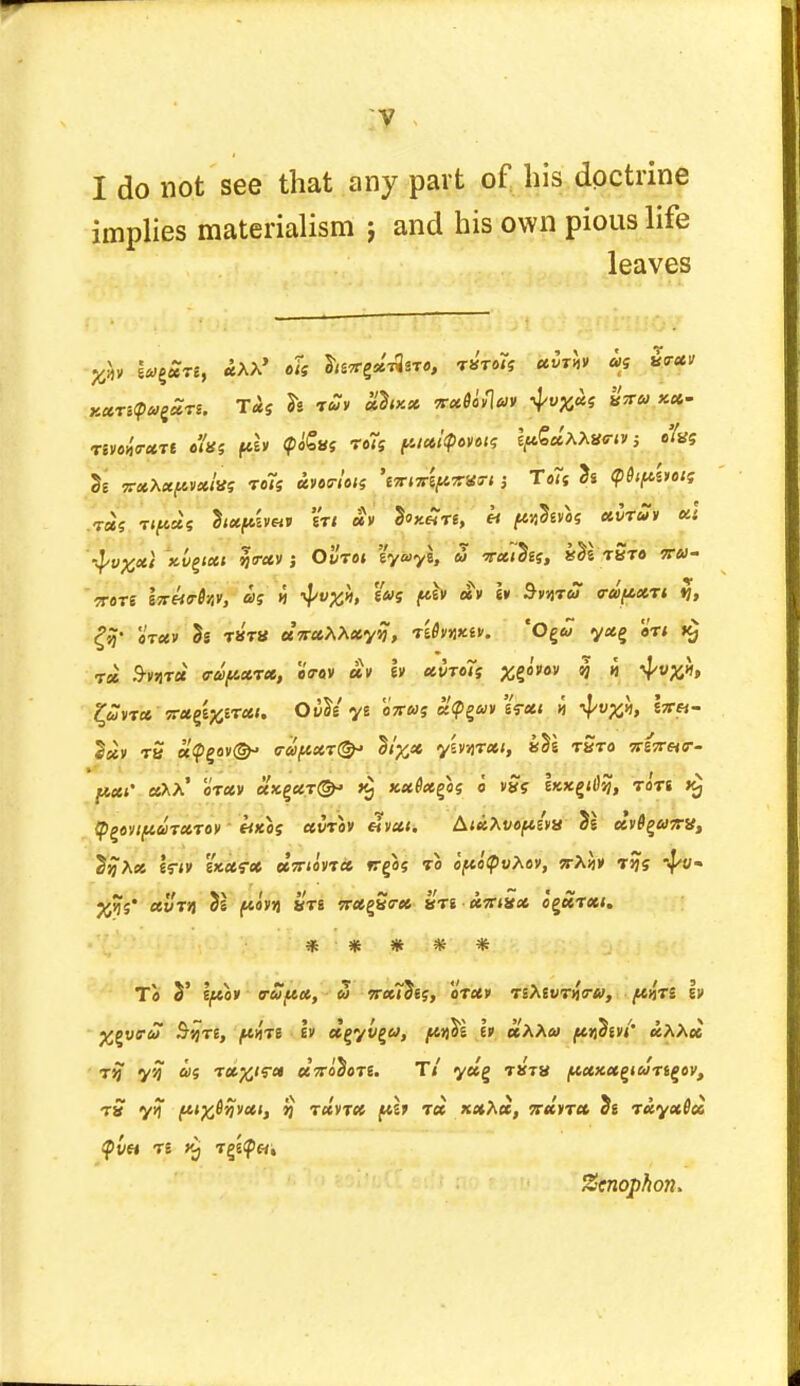 V
I do not see that any part of his doctrine
implies materialism ; and his own pious life
leaves
χὴν ἑωρᾶτε, ἀλλ' οἷς διεπράτ]ετο, τȣτοῖς αὐτὴν ὡς ȣ̓σαν
κατεφωρᾶτε. Τὰς δὲ τῶν ἄδικα παθόν]ων ψυχὰς ȣ̓́πω κα-
τενοήσατε οἵȣς μὲν φόβȣς τοῖς μιαίφονοις ἐμβάλλȣσιν ; οἵȣς
δὲ παλαμναίȣς τοῖς ἀνοσίοις 'ἐπιπέμπȣσι ; Τοῖς δὲ φθιμένοις
τὰς τιμὰς διαμένειν ἔτι ἂν δοκεῖτε, εἰ μηδενὸς αὐτῶν αἱ
ψυχαὶ κύριαι ἦσαν ; Οὔτοι ἔγωγὲ, ὦ παῖδες, ȣ̓δὲ τȣ͂το πώ-
ποτε ἐπείσθην, ὡς ἡ ψυχὴ, ἕως μὲν ἂν ἐν θνητῶ σώματι ᾖ,
ζῇ· ὅταν δὲ τȣ́τȣ ἀπαλλαγῇ, τέθνηκεν. Ὁρῶ γαρ ὅτι ϗ
τὰ θνητὰ σώματα, ὅσον ἂν ἐν αὐτοῖς χρόνον ᾖ ἡ ψυχὴ,
ζῶντα παρέχεται. Οὐδέ γε ὅπως ἄφρων ἔςαι ἡ ψυχὴ, ἐπει-
δὰν τȣ͂ ἄφρονος σώματος δίχα γένηται, ȣ̓δὲ τȣ͂το πέπεισ-
μαι· αλλ' ὅταν ἄκρατος ϗ καθαρὸς ὁ νȣ͂ς ἐκκριθῇ, τότε ϗ
φρονιμώτατον εἰκὸς αὐτὸν εἶναι. Διαλυομένȣ δὲ ἀνθρώπȣ,
δῆλα ἐςιν ἕκαςα ἀπιόντα πρὸς τὸ ὁμόφυλον, πλὴν τῆς ψυ-
χῆς· αὐτη δὲ μόνη ȣ̓́τε παρȣ͂σα ȣ̓́τε ἀπιȣ͂σα ὁρᾶται.
* * * * *
Τὸ δ' ἐμὸν σῶμα, ὦ παῖδες, ὅταν τελευτήσω, μήτε ἐν
χρυσῶ θῆτε, μήτε ἐν ἀργύρω, μηδὲ ἐν ἄλλω μηδενί· ἀλλὰ
τῇ γῇ ὡς τάχιςα ἀπόδοτε. Τί γάρ τȣ́τȣ μακαριώτερον,
τȣ͂ γῆ μιχθῆναι, ἣ τάντα μὲν τὰ καλὰ, πάντα δὲ τἀγαθὰ
φύει τε ϗ τρέφει.
Zenophon.